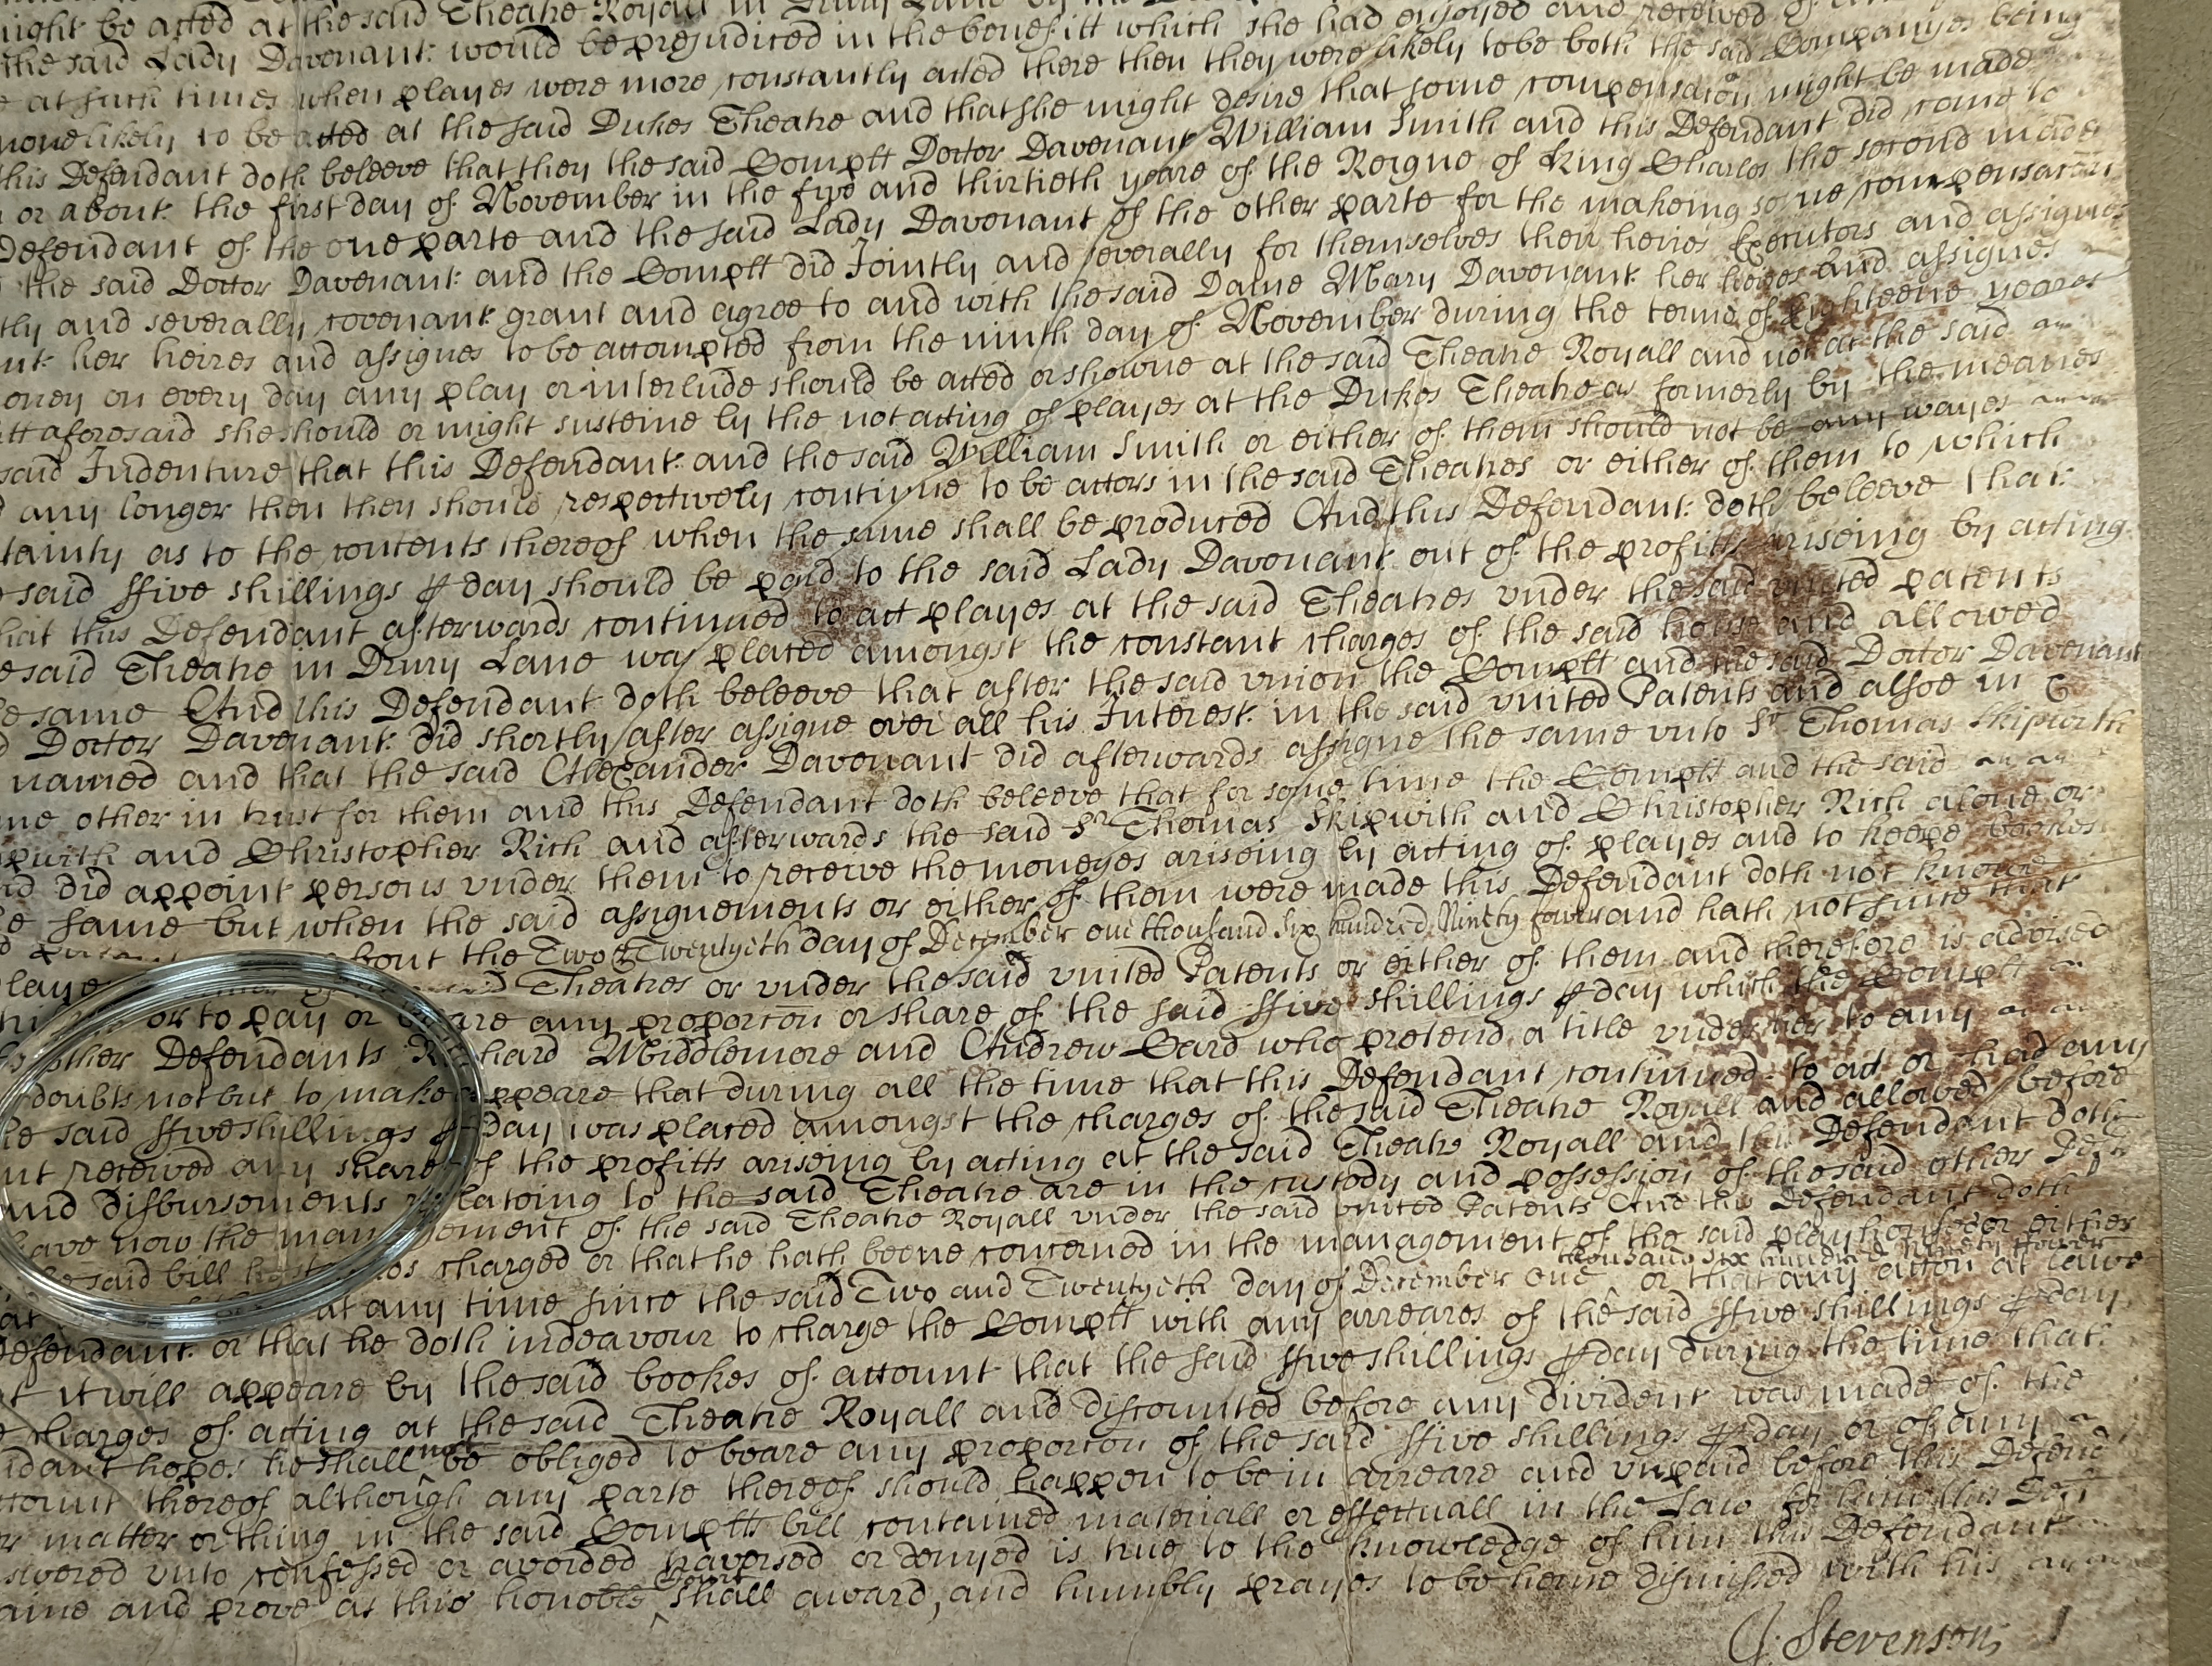 might be acted at the said Theatre Royall in Drury Lane by the
the said Lady Davenant would be prejudiced in the benefitt which she had enjoyed and received
at such times when playes were more constantly acted there then they were likely to be both the said Companyes being
more likely to be acted at the said Dukes Theatre and that she might desire that some compensacon might be made
this Defendant doth beleeve that they the said Complt Doctor Davenant William Smith and this Defendant did come to
or about the first day of November in the five and thirtieth yeare of the Reigne of King Charles the second made
Defendant of the one parte and the said Lady Davenant of the other parte for the makeing some compensacon
the said Doctor Davenant and the Complt did Jointly and severally for themselves their heires Executors and assignes
tly and severally covenant grant and agree to and with the said Dame Mary Davenant her heires and assignes
nt her heires and assignes to be accompted from the ninth day of November during the terme of Eighteene yeares
oney on every day any play or interlude should be acted or showne at the said Theatre Royall and not at the said
tt aforesaid she should or might susteine by the not acting of playes at the Dukes Theatre as formerly by the meanes
said Indenture that this Defendant and the said William Smith or either of them should not be any wayes
any longer then they should respectively continue to be actors in the said Theatres or either of them to which
tainty as to the contents thereof when the same shall be produced And this Defendant doth beleeve that
said ffive shillings ꝑ day should be paid to the said Lady Davenant out of the profitts ariseing by acting
hat this Defendant afterwards continued to act playes at the said Theatres under the said united patents
e said Theatre in Drury Lane was placed amongst the constant charges of the said house and allowed
e same And this Defendant doth beleeve that after the said union the Complt and the said Doctor Davenant
d Doctor Davenant did shortly after assigne over all his Interest in the said united Patents and alsoe in
named and that the said Alexander Davenant did afterwards assigne the same unto Sr Thomas Skipwith
me other in trust for them and this Defendant doth beleeve that for some time the Complt and the said
pwith and Christopher Rich and afterwards the said Sr Thomas Skipwith and Christopher Rich alone or
nd did appoint persons under them to receive the moneyes ariseing by acting of playes and to keepe bookes
e same but when the said assignements or either of them were made this Defendant doth not knowe
bout the Two & Twentyeth day of December one thousand six hundred Ninety fower and hath not since that
laye Theatres or under the said united Patents or either of them and therefore is advised
or to pay or beare any proporcon or share of the said ffive shillings ꝑ day which the Complt
other Defendants Richard Middlemore and Andrew Card who pretend a title under her to any
doubts not but to make appeare that during all the time that this Defendant continued to act or had any
he said ffive shillings ꝑ day was placed amongst the charges of the said Theatre Royall and allowed before
nt received any share of the profitts ariseing by acting at the said Theatre Royall and this Defendant doth
and disbursements relateing to the said Theatre are in the custody and possession of the said other Defts
have now the management of the said Theatre Royall under the said united Patents And this Defendant doth
he said bill charged or that he hath beene concerned in the management of the said playhouses or either
at any time since the said Two and Twentyeth day of December one ^thousand six hundred Ninety ffower or that any accon at lawe
Defendant or that he doth indeavour to charge the Complt with any arreares of the said ffive shillings ꝑ day
t it will appeare by the said bookes of account that the said ffive shillings ꝑ day during the time that
e charges of acting at the said Theatre Royall and discounted before any divident was made of the
ndant hopes he shall ^not be obliged to beare any proporcon of the said ffive shillings ꝑ day or of any
ccount thereof although any parte thereof should happen to be in arreare and unpaid before this Defend
r matter or thing in the said Complts bill contained materiall or effectuall in the Law for him this Deft
swered unto confessed or avoided traversed or denyed is true to the knowledge of him this Defendant
aine and prove as this honoble ^Court shall award, and humbly prayes to be hence dismissed with his
J. Stevenson